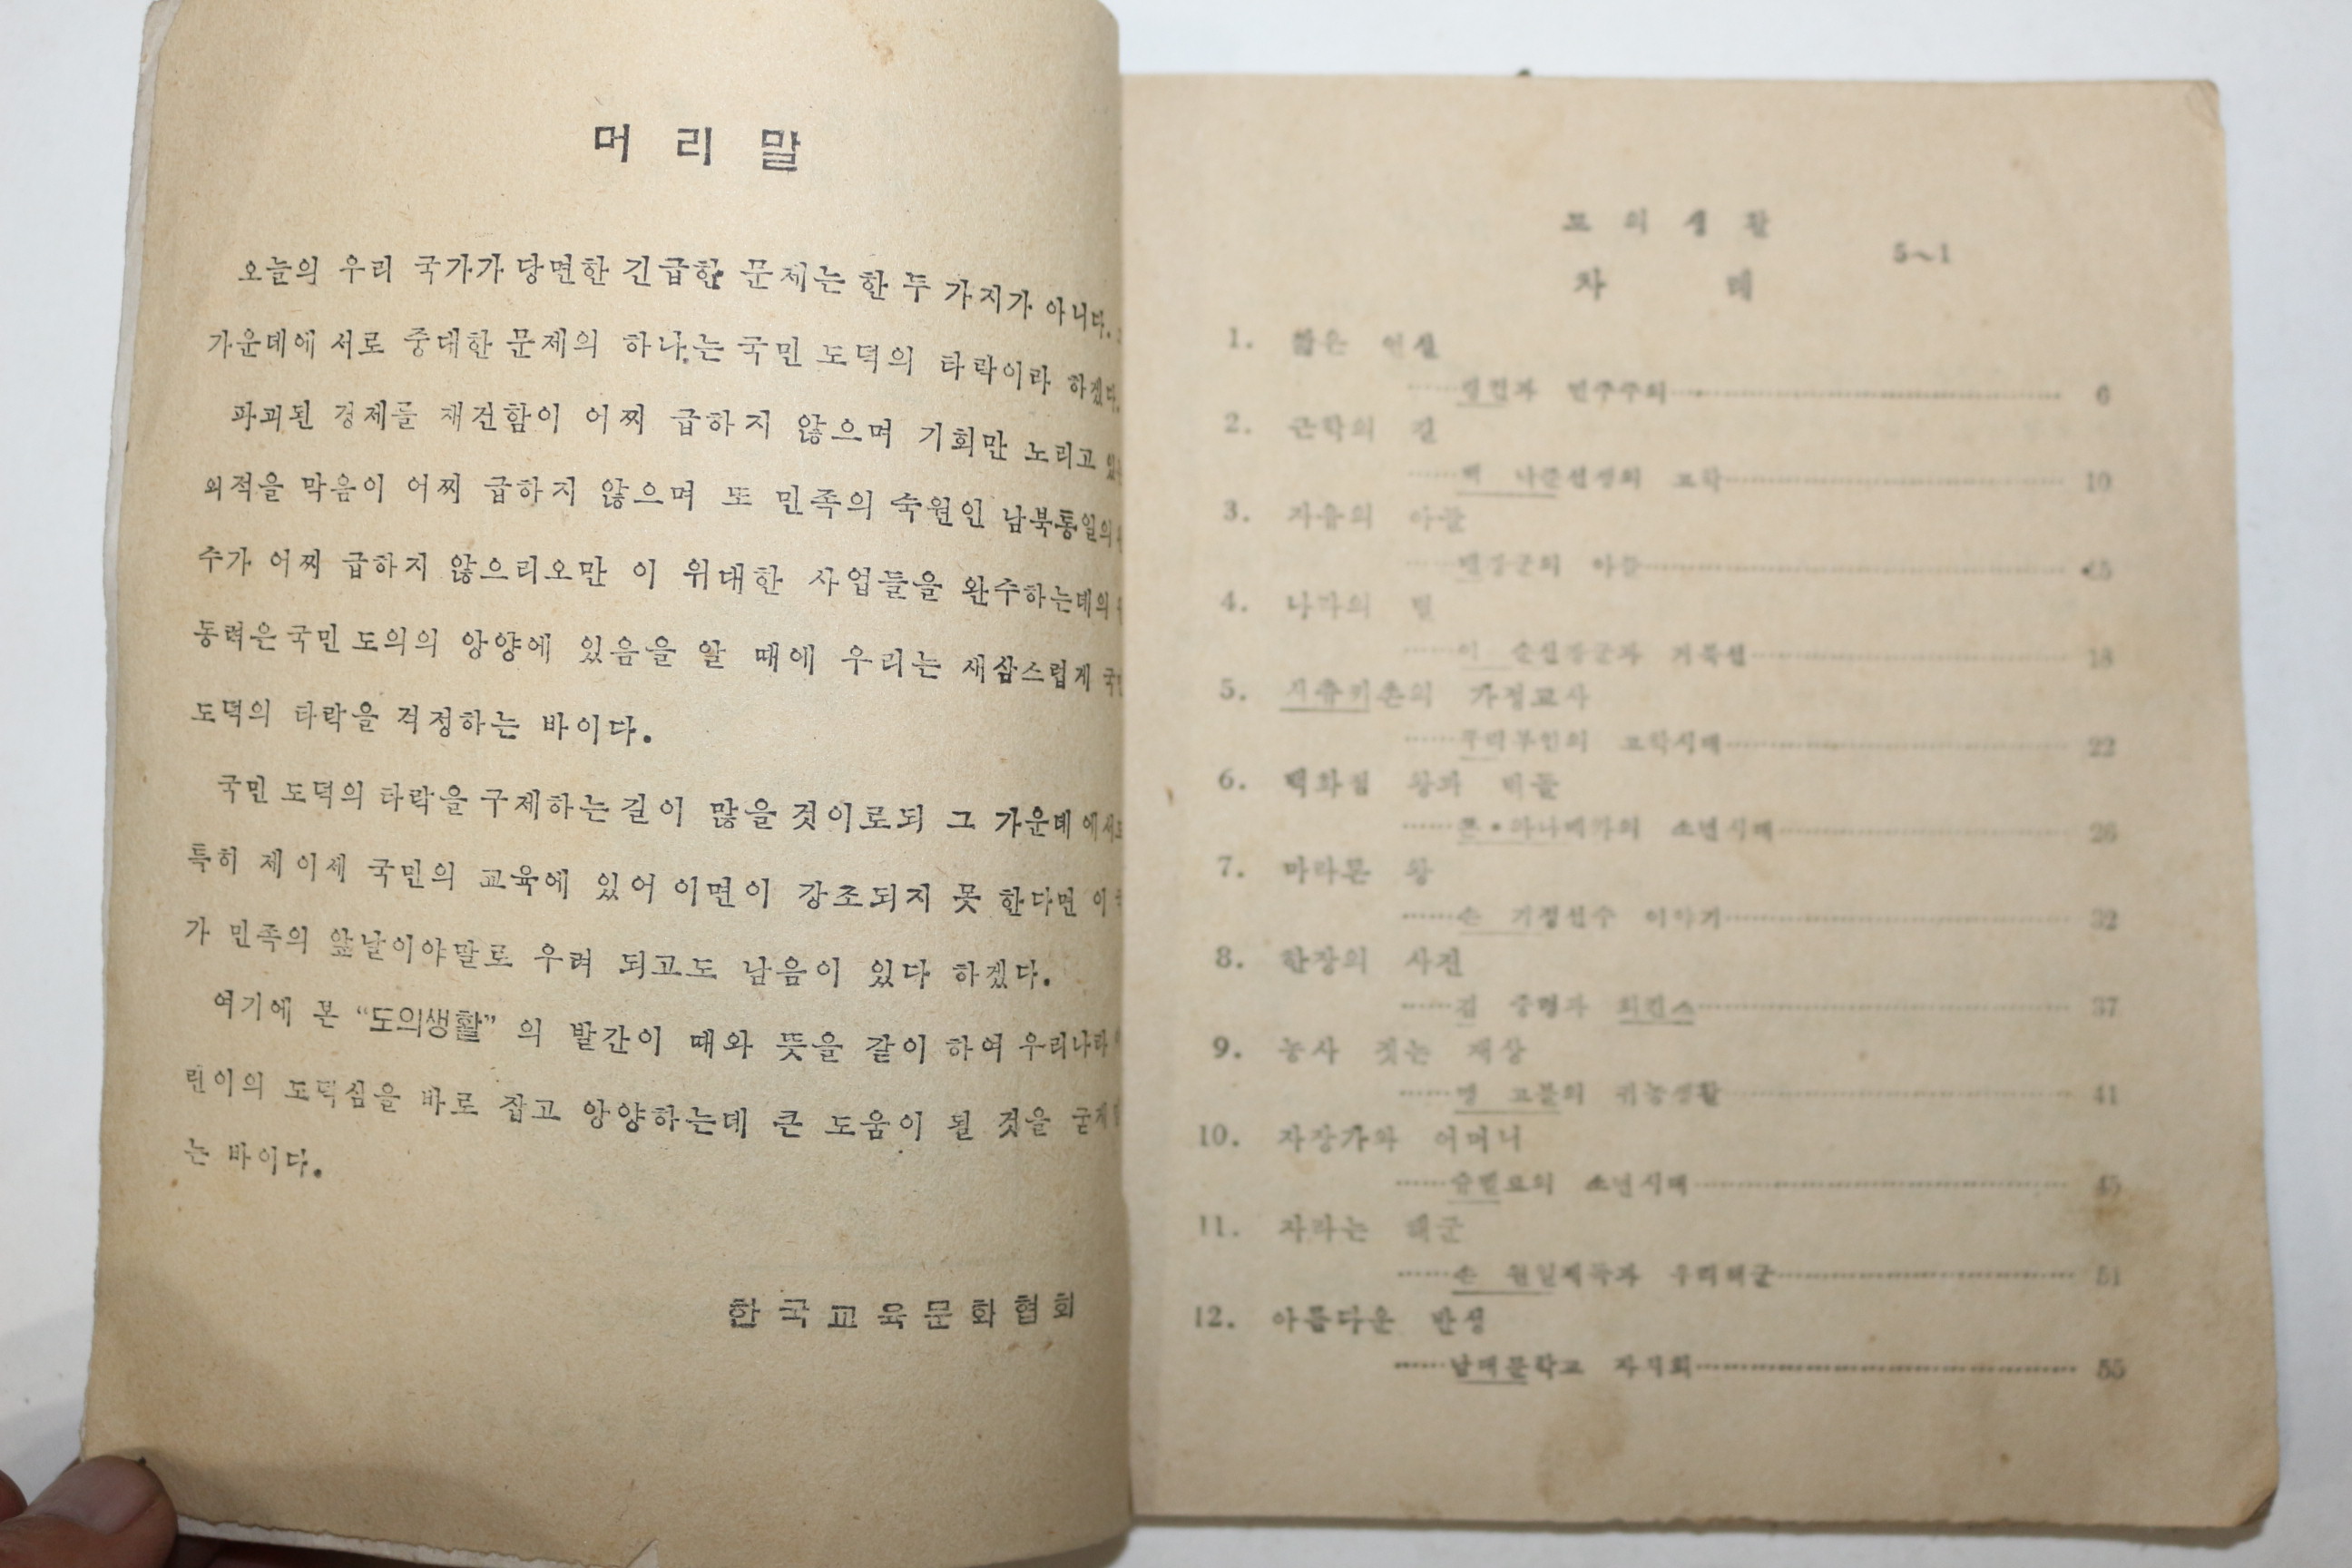 머 리 말
오늘의 우리 국가가 당면한 긴급한 문제는 한 두 가지가 아니다.
가운데에 서로 중대한 문제의 하나는 국민 도덕의 타락이라 하겠다.
파괴된 경제를 재건함이 어찌 급하지 않으며 기회만 노리고
외적을 막음이 어찌 급하지 않으며 또 민족의 숙원인 남북통일의
수가 어찌 급하지 않으리오만 이 위대한 사업들을 완수하는데의
동력은 국민 도의의 앙양에 있음을 알 때에 우리는 새삼스럽게
도덕의 타락을 걱정하는 바이다.
국민 도덕의 타락을 구제하는 길이 많을 것이로되 그 가운데에서도
특히 제 이세 국민의 교육에 있어 이면이 강조되지 못 한다면 이
가 민족의 앞날이야말로 우려 되고도 남음이 있다 하겠다.
여기에 본 “도의생활” 의 발간이 때와 뜻을 같이 하여 우리나라
린이의 도덕심을 바로 잡고 앙양하는데 큰 도움이 될 것을
는 바이다.
한국교육문화협회
도 의 생 활
5～1
차 례
1. 짧은 연설
링컨과 민주주의 6
2. 근학의 길
10
3. 자유의 아들
아들
4. 나라의 빛
이 순신장군과 거북선 18
5. 의 가정교사
퀴리부인의 고학시대 22
6. 백화점 왕과 벼들
존・와나메카의 소년시대 26
7. 마라톤 왕
손 기정선수 이야기 32
8. 한장의 사진
37
9. 농사 짓는 재상
맹 고불의 귀농생활 41
10. 자장가와 어머니
소년시대 45
11. 자라는 해군
손 원일제독과 우리해군 51
12. 아름다운 반성
남대문학교 자치회 55